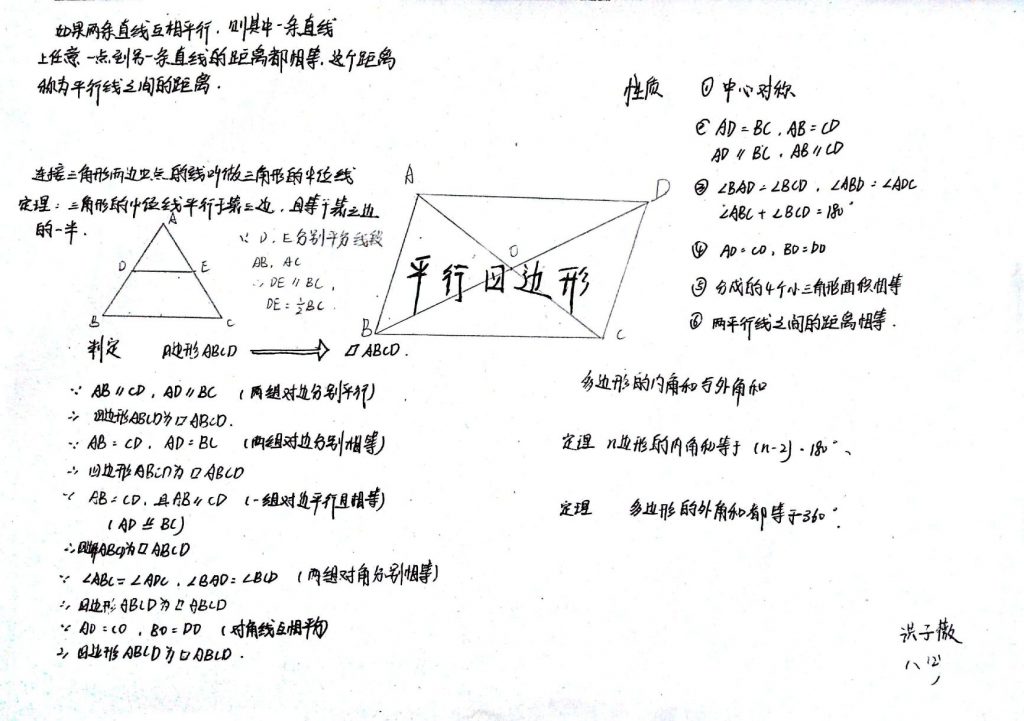 如果两条直线互相平行,则其中一条直线
上任意一点到另一条直线的距离都相等,这个距离
称为平行线之间的距离.
连接三角形两边中点的线叫做三角形的中位线
定理:三角形的中位线平行于第三边,且等于第三边
的一半.
A
D
E
B
C
∵ D、E分别平分线段
AB, AC
∴ DE∥BC,
DE=½BC.
判定 四边形ABCD ⟹ ▱ABCD.
∵ AB∥CD, AD∥BC (两组对边分别平行)
∴ 四边形ABCD为▱ABCD.
∵ AB=CD, AD=BC (两组对边分别相等)
∴ 四边形ABCD为▱ABCD
∵ AB=CD,且AB∥CD (一组对边平行且相等)
(AD ⫽= BC)
∴四边形ABCD为▱ABCD
∵ ∠ABC=∠ADC, ∠BAD=∠BCD (两组对角分别相等)
∴ 四边形ABCD为▱ABCD
∵ AO=CO, BO=DO (对角线互相平分)
∴ 四边形ABCD为▱ABCD.
A
D
O
平行四边形
B
C
性质 ① 中心对称
② AD=BC, AB=CD
AD∥BC, AB∥CD
③ ∠BAD=∠BCD, ∠ABD=∠ADC
∠ABC+∠BCD=180°
④ AO=CO, BO=DO
⑤ 分成的4个小三角形面积相等
⑥ 两平行线之间的距离相等.
多边形的内角和与外角和
定理 n边形的内角和等于(n-2)·180°、
定理 多边形的外角和都等于360°.
洪子薇
八(2)